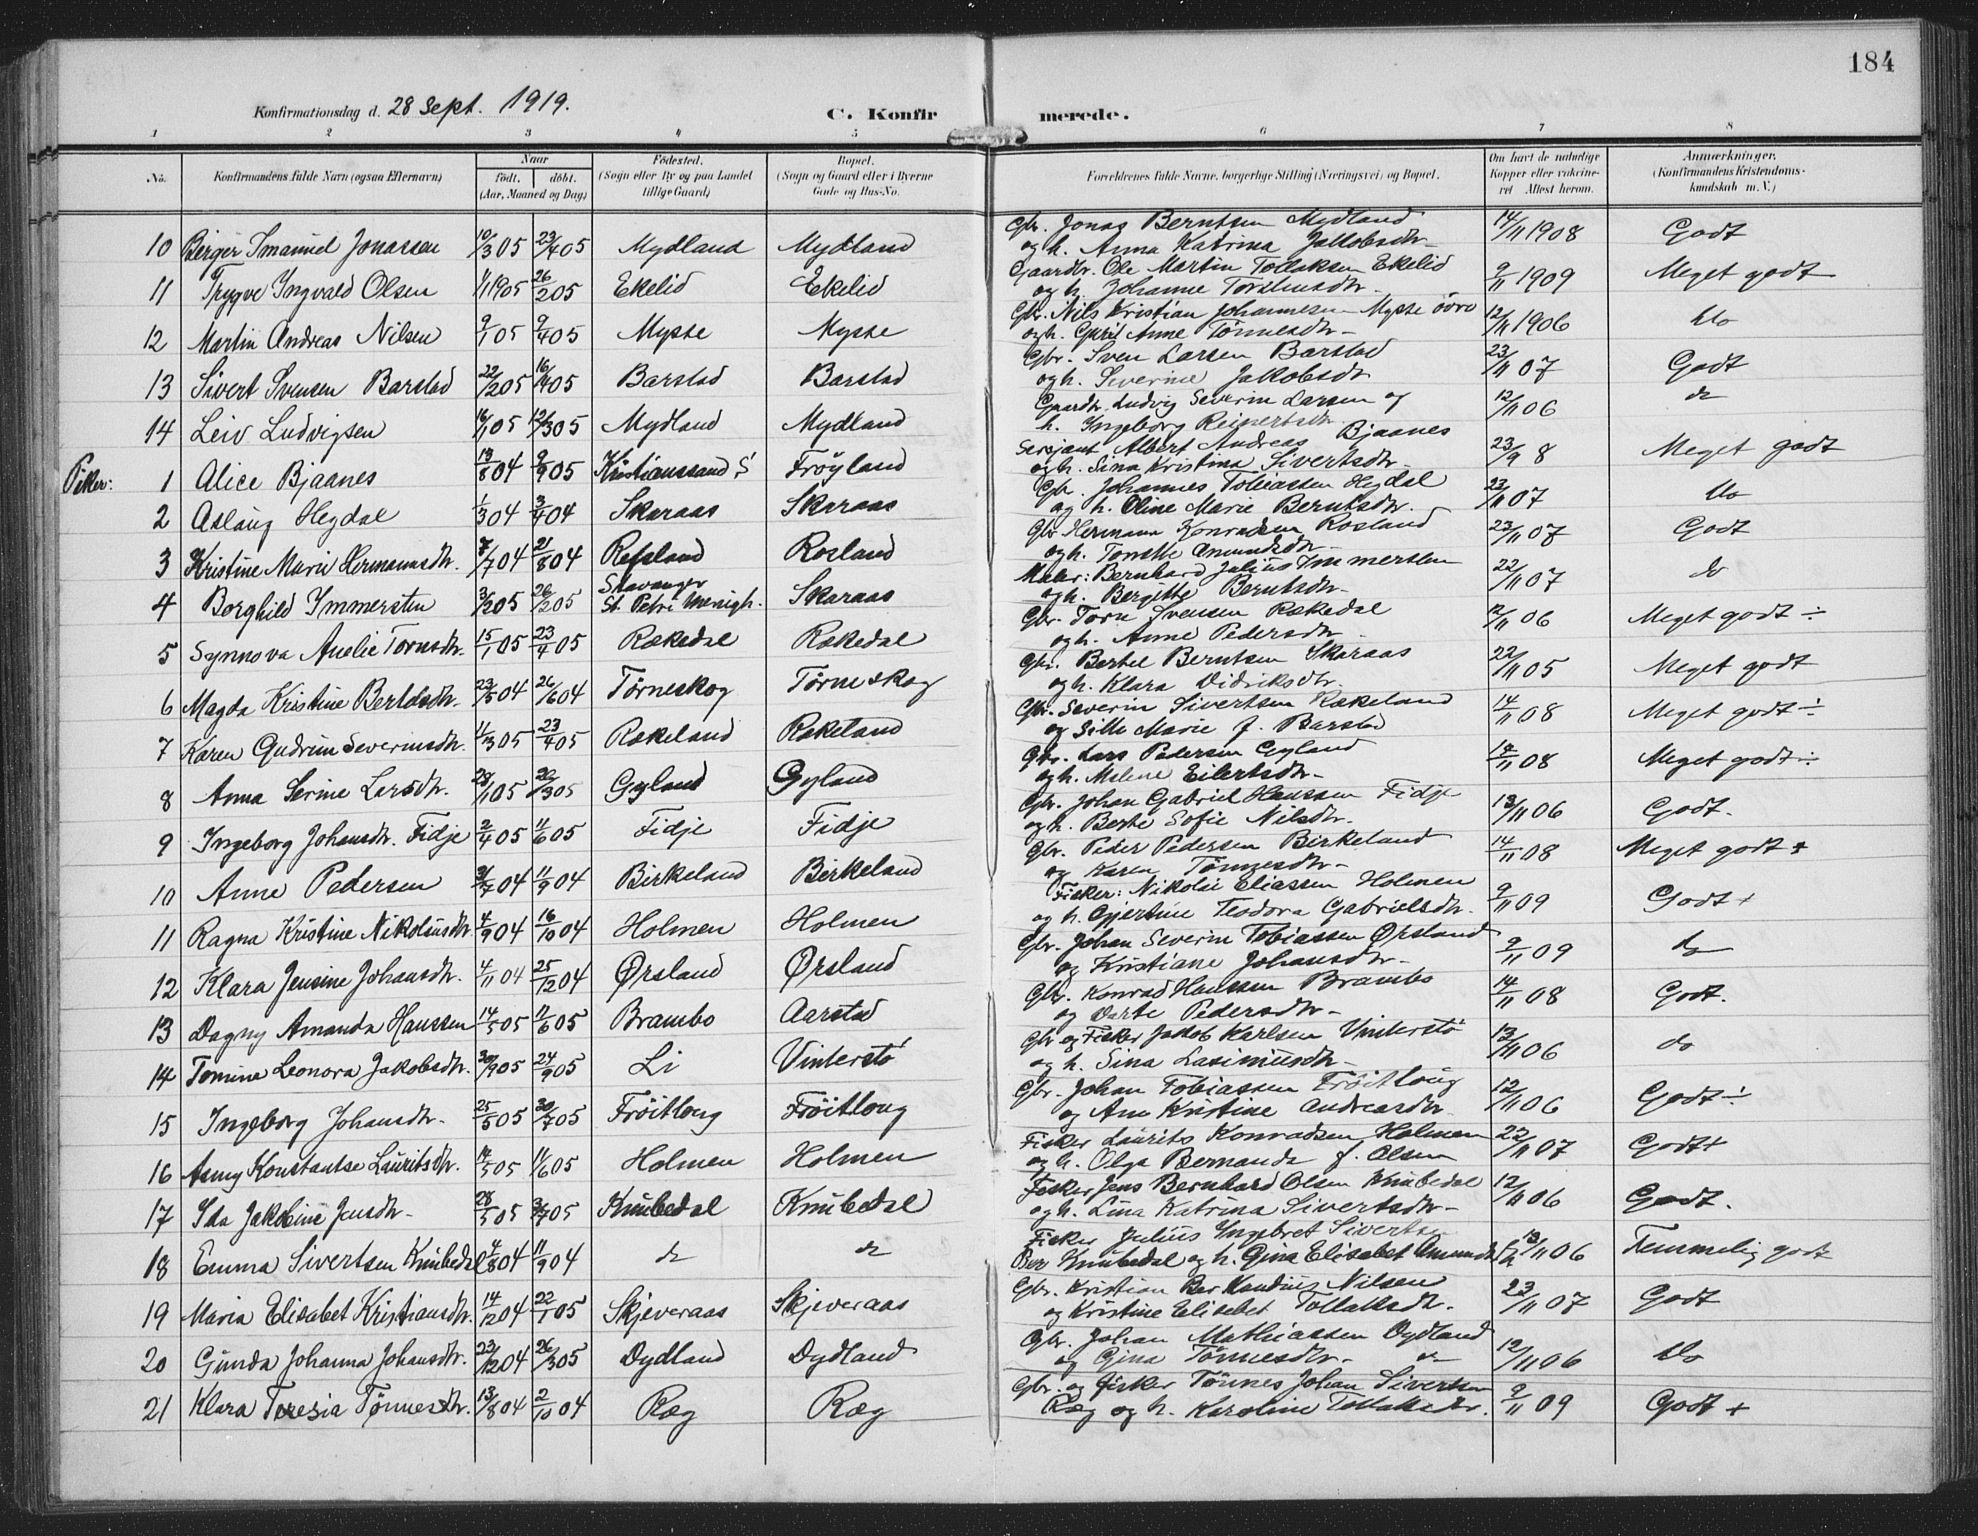 184
Konfirmationsdag d. 28 Sept. 1919. C. Konfirmerede.
1 2 3 4 5 6 7 8
No. Konfirmandens fulde Navn (ogsaa Efternavn) Naar födt. döbt. (Aar, Maaned og Dag) Födested. (Sogn eller By og paa Landet tillige Gaard) Bopæl. (Sogn og Gaard eller i Byerne Gade og Hus-No. Forældrenes fulde Navne, borgerlige Stilling (Næringsvei) og Bopæl. Om havt de naturlige Kopper eller vaccineret Attest herom. Anmærkninger. (Konfirmandens Kristendomskundskab m. V.)
10 Berger Emanuel Jonassen 10/3 05 23/4 05 Mydland Mydland Gbr. Jonas Berntsen Mydland og h. Anna Katrina Jakobsdtr. 14/11 1908 Godt
11 Trygve Ingvald Olsen 1/1 1905 26/2 05 Ekelid Ekelid Gaardbr. Ole Martin Tollaksen Ekelid og h. Johanne Torstensdtr. 9/11 1909 Meget godt
12 Martin Andreas Nilsen 9/1 05 9/4 05 Mysse Mysse Gbr. Nils Kristian Johannesen Mysse övre og h. Guril Anne Tönnesdtr. 12/11 1906 do
13 Sivert Svensen Barstad 22/2 05 16/4 05 Barstad Barstad Gbr. Sven Larsen Barstad og h. Severine Jakobsdtr 23/11 07 Godt
14 Leiv Ludvigsen 16/1 05 12/3 05 Mydland Mydland Gaardbr. Ludvig Severin Larsen og h. Ingeborg Reinertsdtr. 12/11 06 do
Piker: 1 Alice Bjaanes 13/8 04 9/9 05 Kristianssand S Fröyland Sersjant Albert Andreas Bjaanes og h. Sina Kristina Sivertsdtr. 23/9 8 Meget godt
2 Aslaug Hegdal 1/3 04 3/4 04 Skaraas Skaraas Gbr. Johannes Tobiassen Hegdal og h. Oline Marie Berntsdtr. 23/11 07 do
3 Kristine Marie Hermannsdtr. 7/7 04 21/8 04 Refsland Rosland Gbr Hermann Konradsen Rosland og h. Tonette Amundsdtr 23/11 07 Godt
4 Borghild Immersten 3/2 05 26/2 05 Stavanger St. Petri Menigh. Skaraas Maler: Bernhard Julius Immersten og h. Bergitte Berntsdtr. 22/11 07 do
5 Synnova Amalie Tornsdtr. 15/1 05 23/4 05 Rækedal Rækedal Gbr. Torn Svensen Rækedal og h. Anne Pedersdtr 12/11 06 Meget godt ÷
6 Magda Kristine Bertelsdtr. 23/5 04 26/6 04 Törneskog Törneskog Gbr. Bertel Berntsen Skaraas og h. Klara Didriksdtr. 22/11 05 Meget godt
7 Karen Gudrun Severinsdtr. 1/3 05 23/4 05 Rakeland Rakeland Gbr. Severin Sivertsen Rækeland og Sille Marie f. Barstad 14/11 08 Meget godt ÷
8 Anna Serine Larsdtr. 28/1 05 20/3 05 Gyland Gyland Gbr. Lars Pedersen Gyland og h. Malene Eilertsdtr. 14/11 08 Meget godt ÷
9 Ingeborg Johansdtr. Fidje 2/4 05 11/6 05 Fidje Fidje Gbr. Johan Gabriel Hanssen Fidje og h. Berte Sofie Nilsdtr. 13/11 06 Godt.
10 Anne Pedersen 31/7 04 11/9 04 Birkeland Birkeland Gbr. Peder Pedersen Birkeland og Karen Tönnesdtr. 14/11 08 Meget godt +
11 Ragna Kristine Nikolaisdtr 4/9 04 16/10 04 Holmen Holmen Fisker: Nikolai Eliassen Holmen og h. Gjertine Teodora Gabrielsdtr. 9/11 09 Godt +
12 Klara Jensine Johansdtr. 4/11 04 25/12 04 Ørsland Ørsland Gbr. Johan Severin Tobiassen Ørsland og Kristiane Johansdtr. 9/11 09 do
13 Dagny Amanda Hanssen 14/5 05 11/6 05 Brambo Aarstad Gbr. Konrad Hanssen Brambo og Dorte Pedersdtr. 14/11 08 Godt.
14 Tomine Leonora Jakobsdtr. 30/9 05 24/9 05 Li Vinterstö Gbr og Fisker Jakob Karlsen Vinterstö og h. Sina Lasimusdtr. 13/11 06 do
15 Ingeborg Johansdtr. 25/5 05 30/7 05 Fröitlong Fröitlong Gbr. Johan Tobiassen Fröitlong og Ane Kristine Andreasdtr. 12/11 06 Godt ÷
16 Asny Konstantse Lauritsdtr. 14/5 05 11/6 05 Holmen Holmen Fisker Laurits Konradsen Holmen og h. Olga Bernande f. Olsen 22/11 07 Godt +
17 Ida Jakobine Jensdtr. 28/5 05 3/7 05 Knubedal Knubedal Fisker Jens Bernhard Olsen Knubedal og h. Lina Katrina Sivertsdtr. 12/11 06 Godt.
18 Emma Sivertsen Knubedal 4/8 04 11/9 04 do do Fisker Julius Ingebret Sivertsen Knubedal og h. Gina Elisabet Amundsdtr 13/11 06 Temmelig godt
19 Maria Elisabet Kristiansdtr. 14/12 04 22/1 05 Skjeveraas Skjeveraas Gbr. Kristian Nilsen og Kristine Elisabet Tollaksdtr. 23/11 07 Godt
20 Gunda Johanna Johansdtr. 23/12 04 26/3 05 Dydland Dydland Gbr. Johan Mathiassen Dydland og Gina Tönnesdtr. do 12/11 06 do
21 Klara Teresia Tönnesdtr. 13/8 04 2/10 04 Ræg Ræg Gbr. og fisker Tönnes Johan Sivertsen Ræg og h. Karoline Tollaksdtr. 9/11 09 Godt +